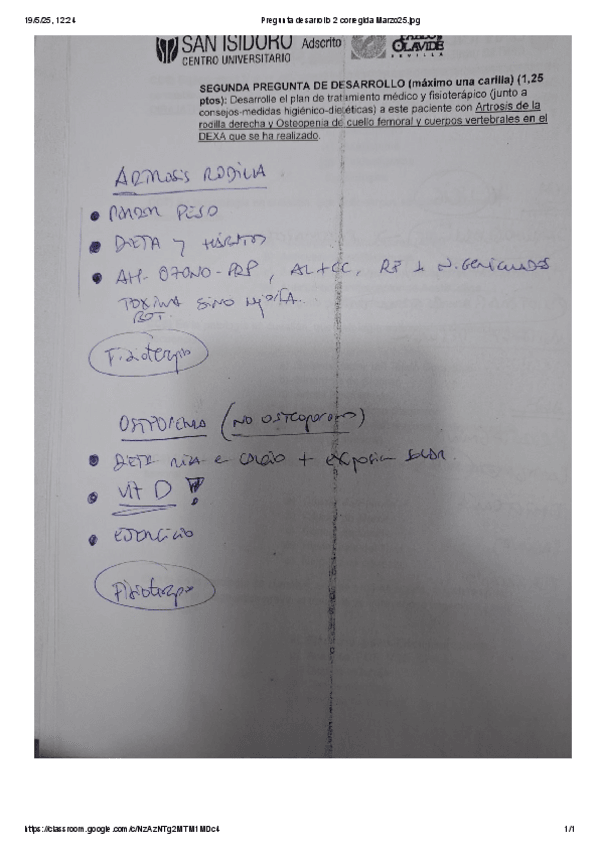 19/5/25, 12:24
Pregunta desarrollo 2 corregida Marzo25.jpg
SAN ISIDORO
CENTRO UNIVERSITARIO
Adscrito
OLAVIDE
SEVILLA
SEGUNDA PREGUNTA DE DESARROLLO (máximo una carilla) (1,25
ptos): Desarrolle el plan de tratamiento médico y fisioterápico (junto a
consejos-medidas higiénico-dietéticas) a este paciente con Artrosis de la
rodilla derecha y Osteopenia de cuello femoral y cuerpos vertebrales en el
DEXA que se ha realizado.
ARTROSIS RODILLA
PESO
DIETA y HÁBITOS
AH- OZONO-PRP, RF
TOXINA SINO MEJORÍA.
BOT.
Fisioterapia
OSTEOPENIA (NO OSTEOPOROSIS)
DIETA RICA e CALCIO + EXPOSICIÓN SOLAR.
Vit D !
EJERCICIO
Fisioterapia
https://classroom.google.com/c/NzAzNTg2MTM1MDc4
1/1